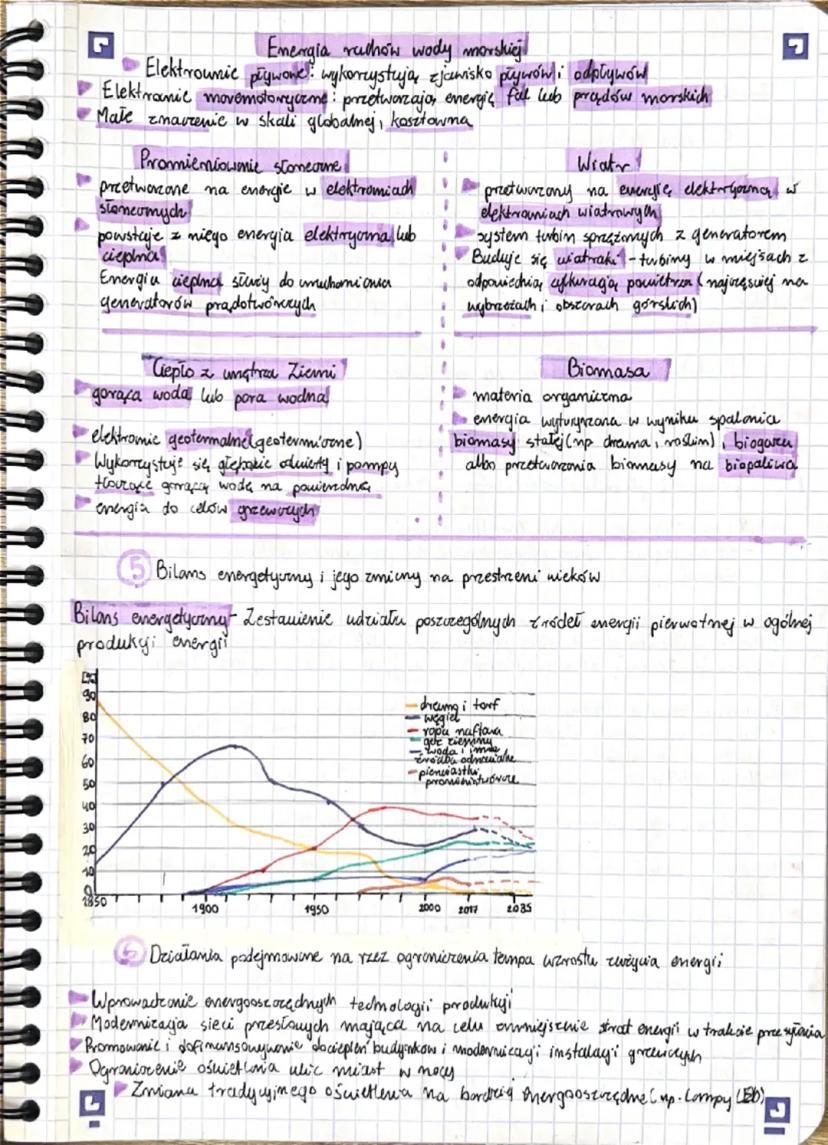 Energia ruchów wody morskiej
Elektrownie pływowe: wykorzystują zjawisko pływów i odpływów
Elektrownie maremotoryczne: przetwarzają energię fal lub prądów morskich
Małe znaczenie w skali globalnej, kosztowna
Promieniowanie słoneczne
przetwarzane na energie w elektrowniach
słonecznych
powstaje z niego energia elektryczna lub
cieplna
Energia cieplna służy do uruchomiania
generatorów prądotwórczych
Wiatr
przetwarzany na energię elektryczną w
elektrowniach wiatrowych
system turbin sprzężonych z generatorem
Buduje się wiatraki - turbiny w miejscach z
odpowiednią cyrkulacją powietrza (najczęściej na
wybrzeżach i obszarach górskich)
Ciepło z wnętrza Ziemi
gorąca woda lub para wodna
elektrownie geotermalne (geotermiczne)
Wykorzystuje się głębokie odwierty i pompy
tłoczące gorącą wodę na powierzchnię
energia do celów grzewczych
Biomasa
materia organiczna
energia wytwarzana w wyniku spalania
biomasy stałej (np drewna, roślin), biogazu
albo przetworzenia biomasy na biopaliwa
5 Bilans energetyczny i jego zmiany na przestrzeni wieków
Bilans energetyczny - Zestawienie udziału poszczególnych źródeł energii pierwotnej w ogólnej
produkcji energii
[%]
90
80
70
60
50
40
30
20
10
0
1850 1900 1950 2000 2017 2035
drewno i torf
węgiel
ropa naftowa
gaz ziemny
woda i inne
źródła odnawialne
pierwiastki
promieniotwórcze
6 Działania podejmowane na rzez ograniczenia tempa wzrostu zużycia energii
Wprowadzanie energooszczędnych technologii produkcji
Modernizacja sieci przesłowych mająca na celu zmniejszenie strat energii w trakcie przesyłania
Promowanie i dofinansowywanie dociepleń budynków i modernizacji instalacji grzewczych
Ograniczenie oświetlenia ulic miast w nocy
Zmiana tradycyjnego oświetlenia na bardziej energooszczędne (np. Lampy LED)